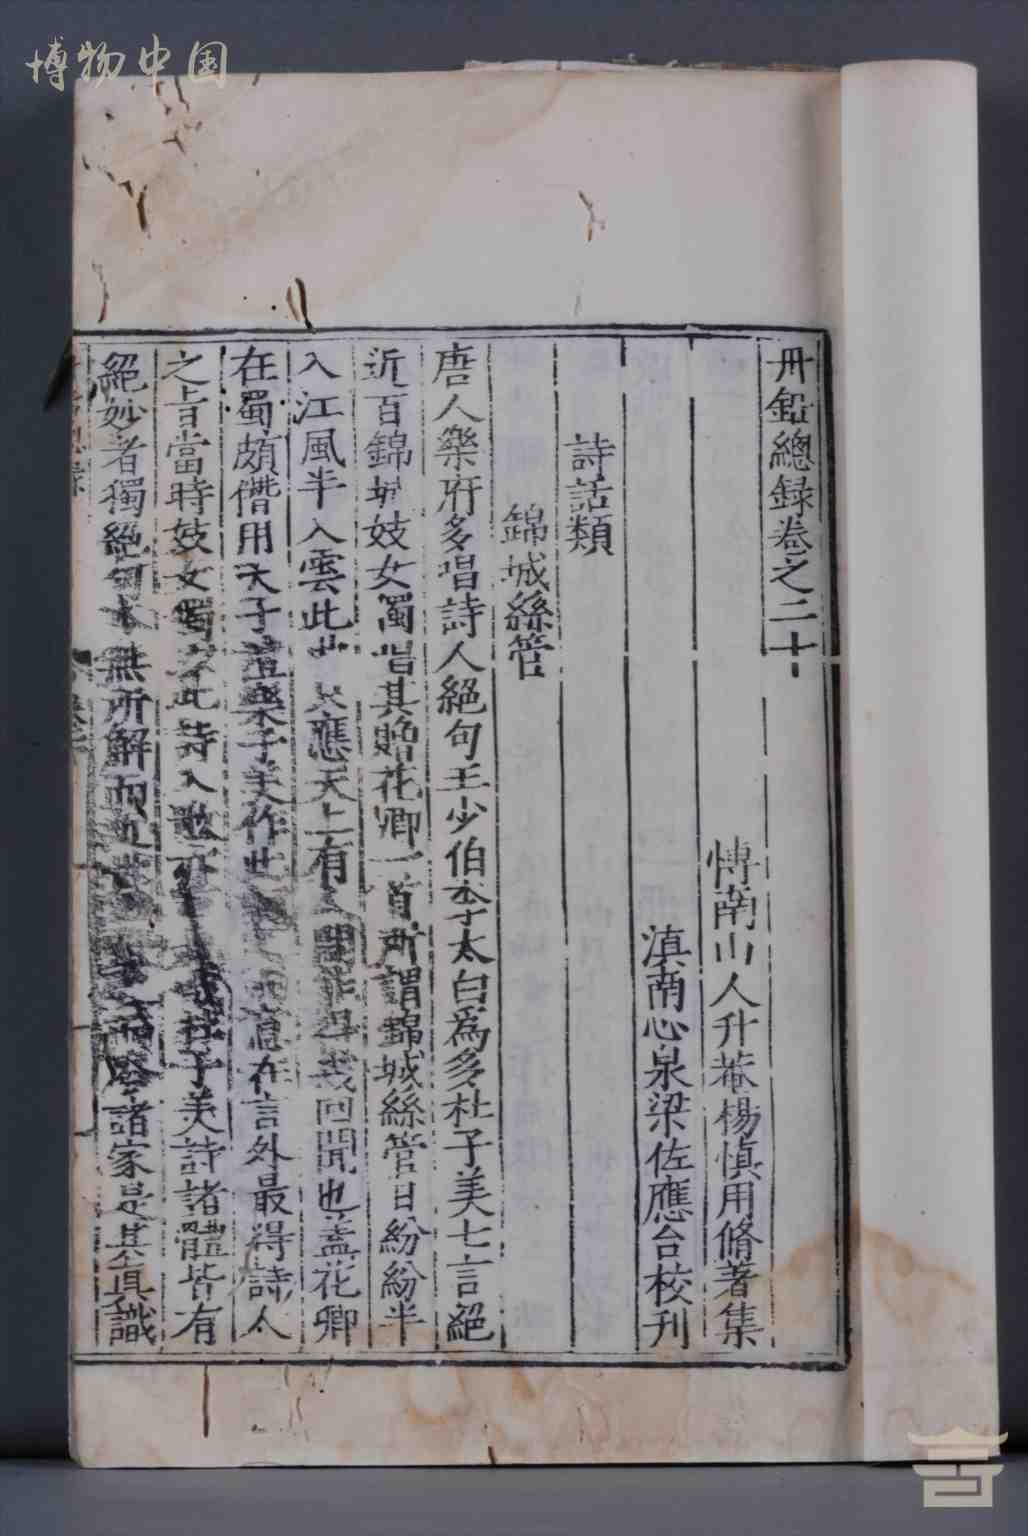 博物中国
丹鉛總録卷之二十
博南山人升菴楊慎用脩著集
滇南心泉梁佐應台校刋
詩話類
錦城絲管
唐人樂府多唱詩人絕句王少伯李太白為多杜子美七言絕
近百錦城妓女獨唱其贈花卿一首所謂錦城絲管日紛紛半
入江風半入雲此 應天上有人間能得幾回聞也蓋花卿
在蜀頗僭用天子禮樂子美作此 意在言外最得詩人
之旨當時妓女獨以此詩入歌亦 杜子美詩諸體皆有
絕妙者獨絕句本無所解而近世 諸家是其真識